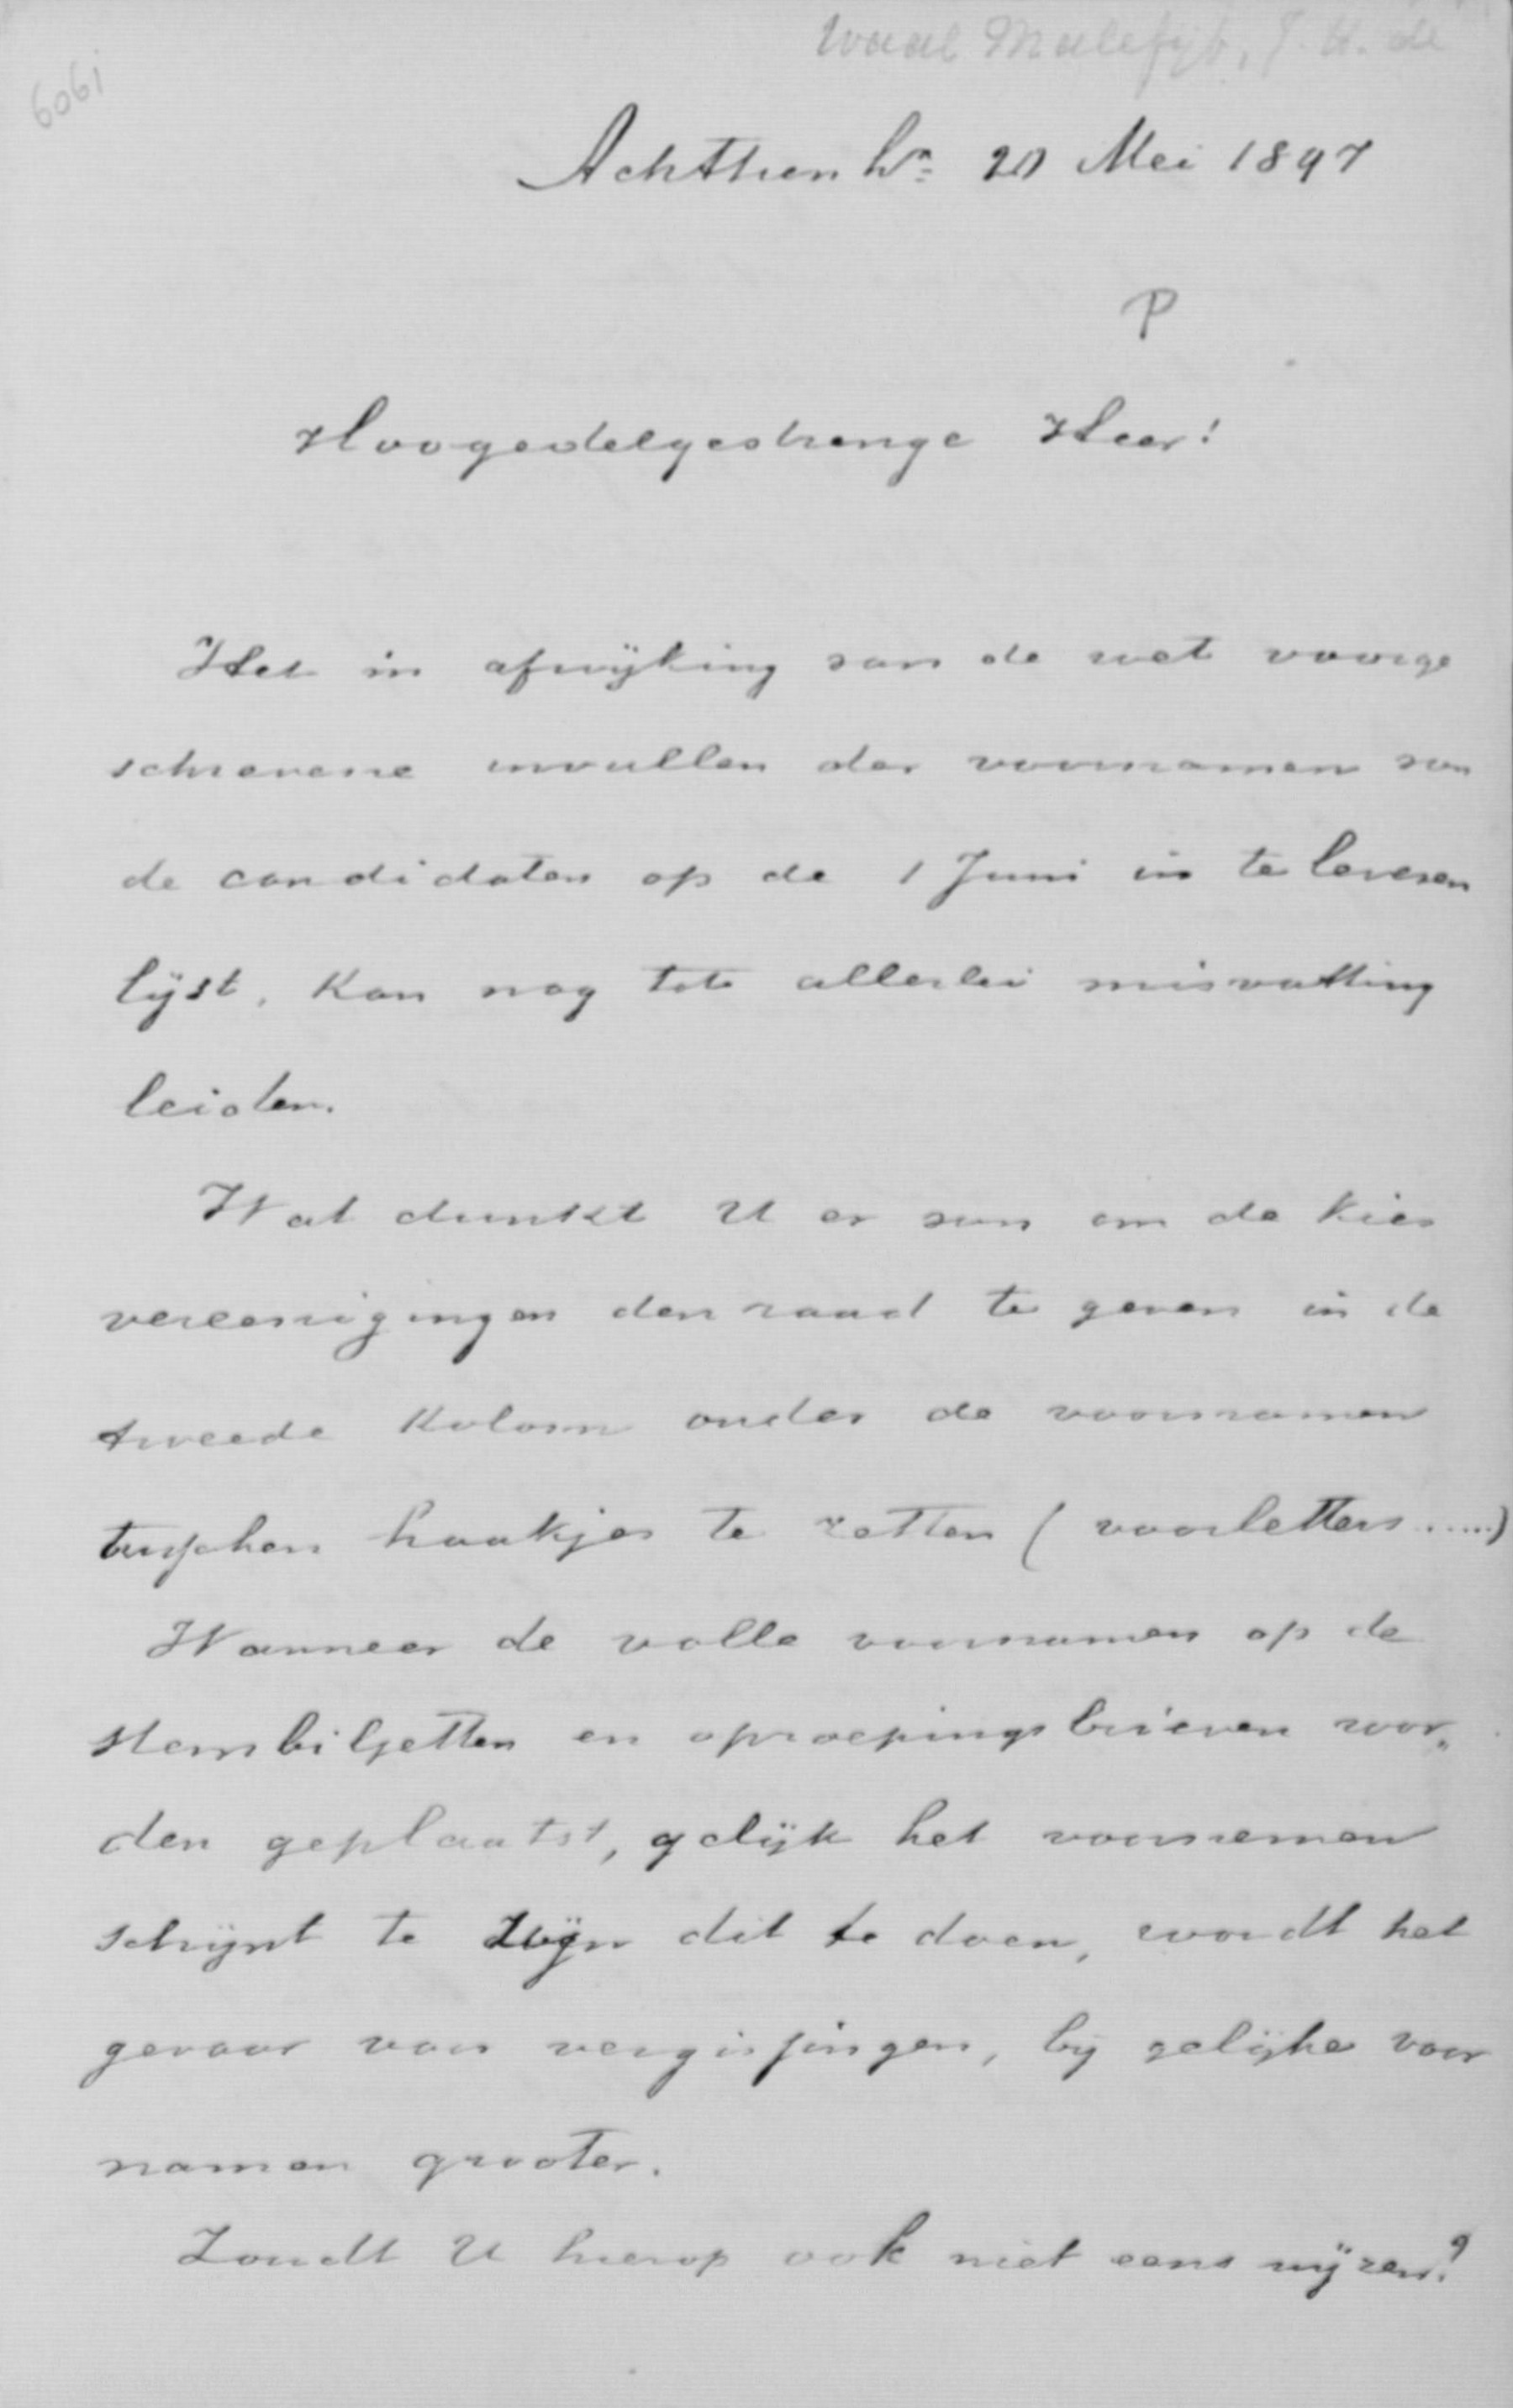 Waal Malefijt, J. H. de
6061
Achttienhn. 20 Mei 1897
P
Hoogedelgestrenge Heer!
Het in afwijking van de wet voorge
schrevene invullen der voornamen van
de candidaten op de 1 Juni in te leveren
lijst, kan nog tot allerlei misvatting
leiden.
Wat dunkt U er van om de kies
vereenigingen den raad te geven in de
tweede kolom onder de voornamen
tusschen haakjes te zetten (voorletters.....)
Wanneer de volle voornamen op de
stembiljetten en oproepingsbrieven wor„
den geplaatst, gelijk het voornemen
schijnt te zijn dit te doen, wordt het
gevaar van vergissingen, bij gelijke voor
namen grooter.
Zoudt U hierop ook niet eens wijzen?